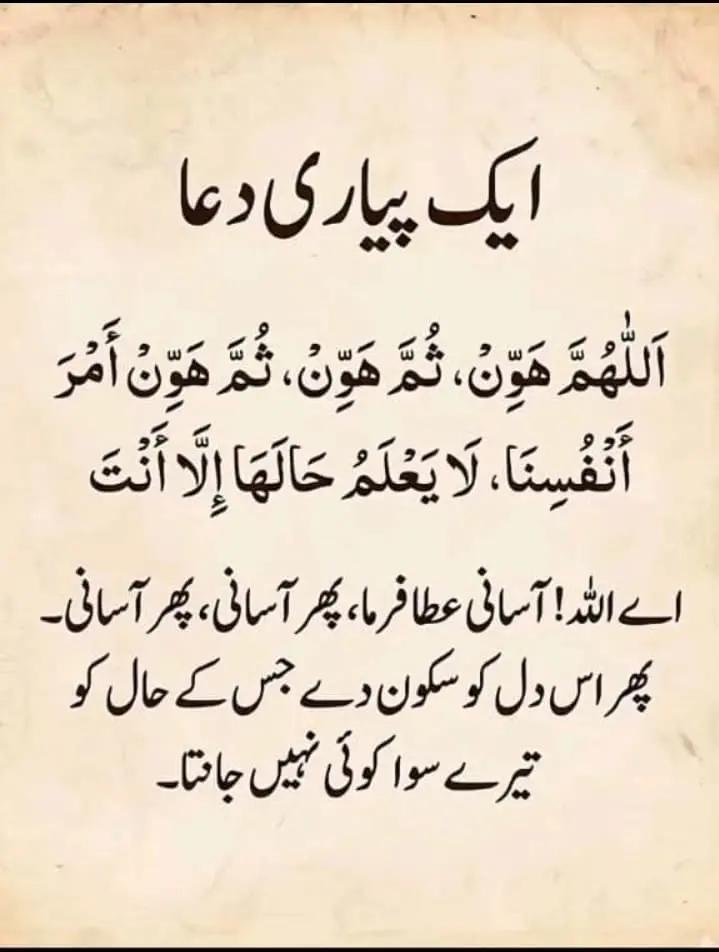 ایک پیاری دعا
اَللّٰهُمَّ هَوِّنْ، ثُمَّ هَوِّنْ، ثُمَّ هَوِّنْ أَمْرَ
أَنْفُسِنَا، لَا يَعْلَمُ حَالَهَا إِلَّا أَنْتَ
اے اللہ! آسانی عطا فرما، پھر آسانی، پھر آسانی۔
پھر اس دل کو سکون دے جس کے حال کو
تیرے سوا کوئی نہیں جانتا۔